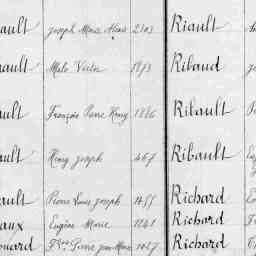 ault Joseph Marie Alexis 2103 Riault
ault Malo Victor 1873 Ribaud
ault François Pierre Henry 1886 Ribault
ault Henry Joseph 467 Ribault
ault Pierre Louis Joseph 1455 Richard
aux Eugène Marie 1241 Richard
ouard Pierre Jean Marie 1427 Richard